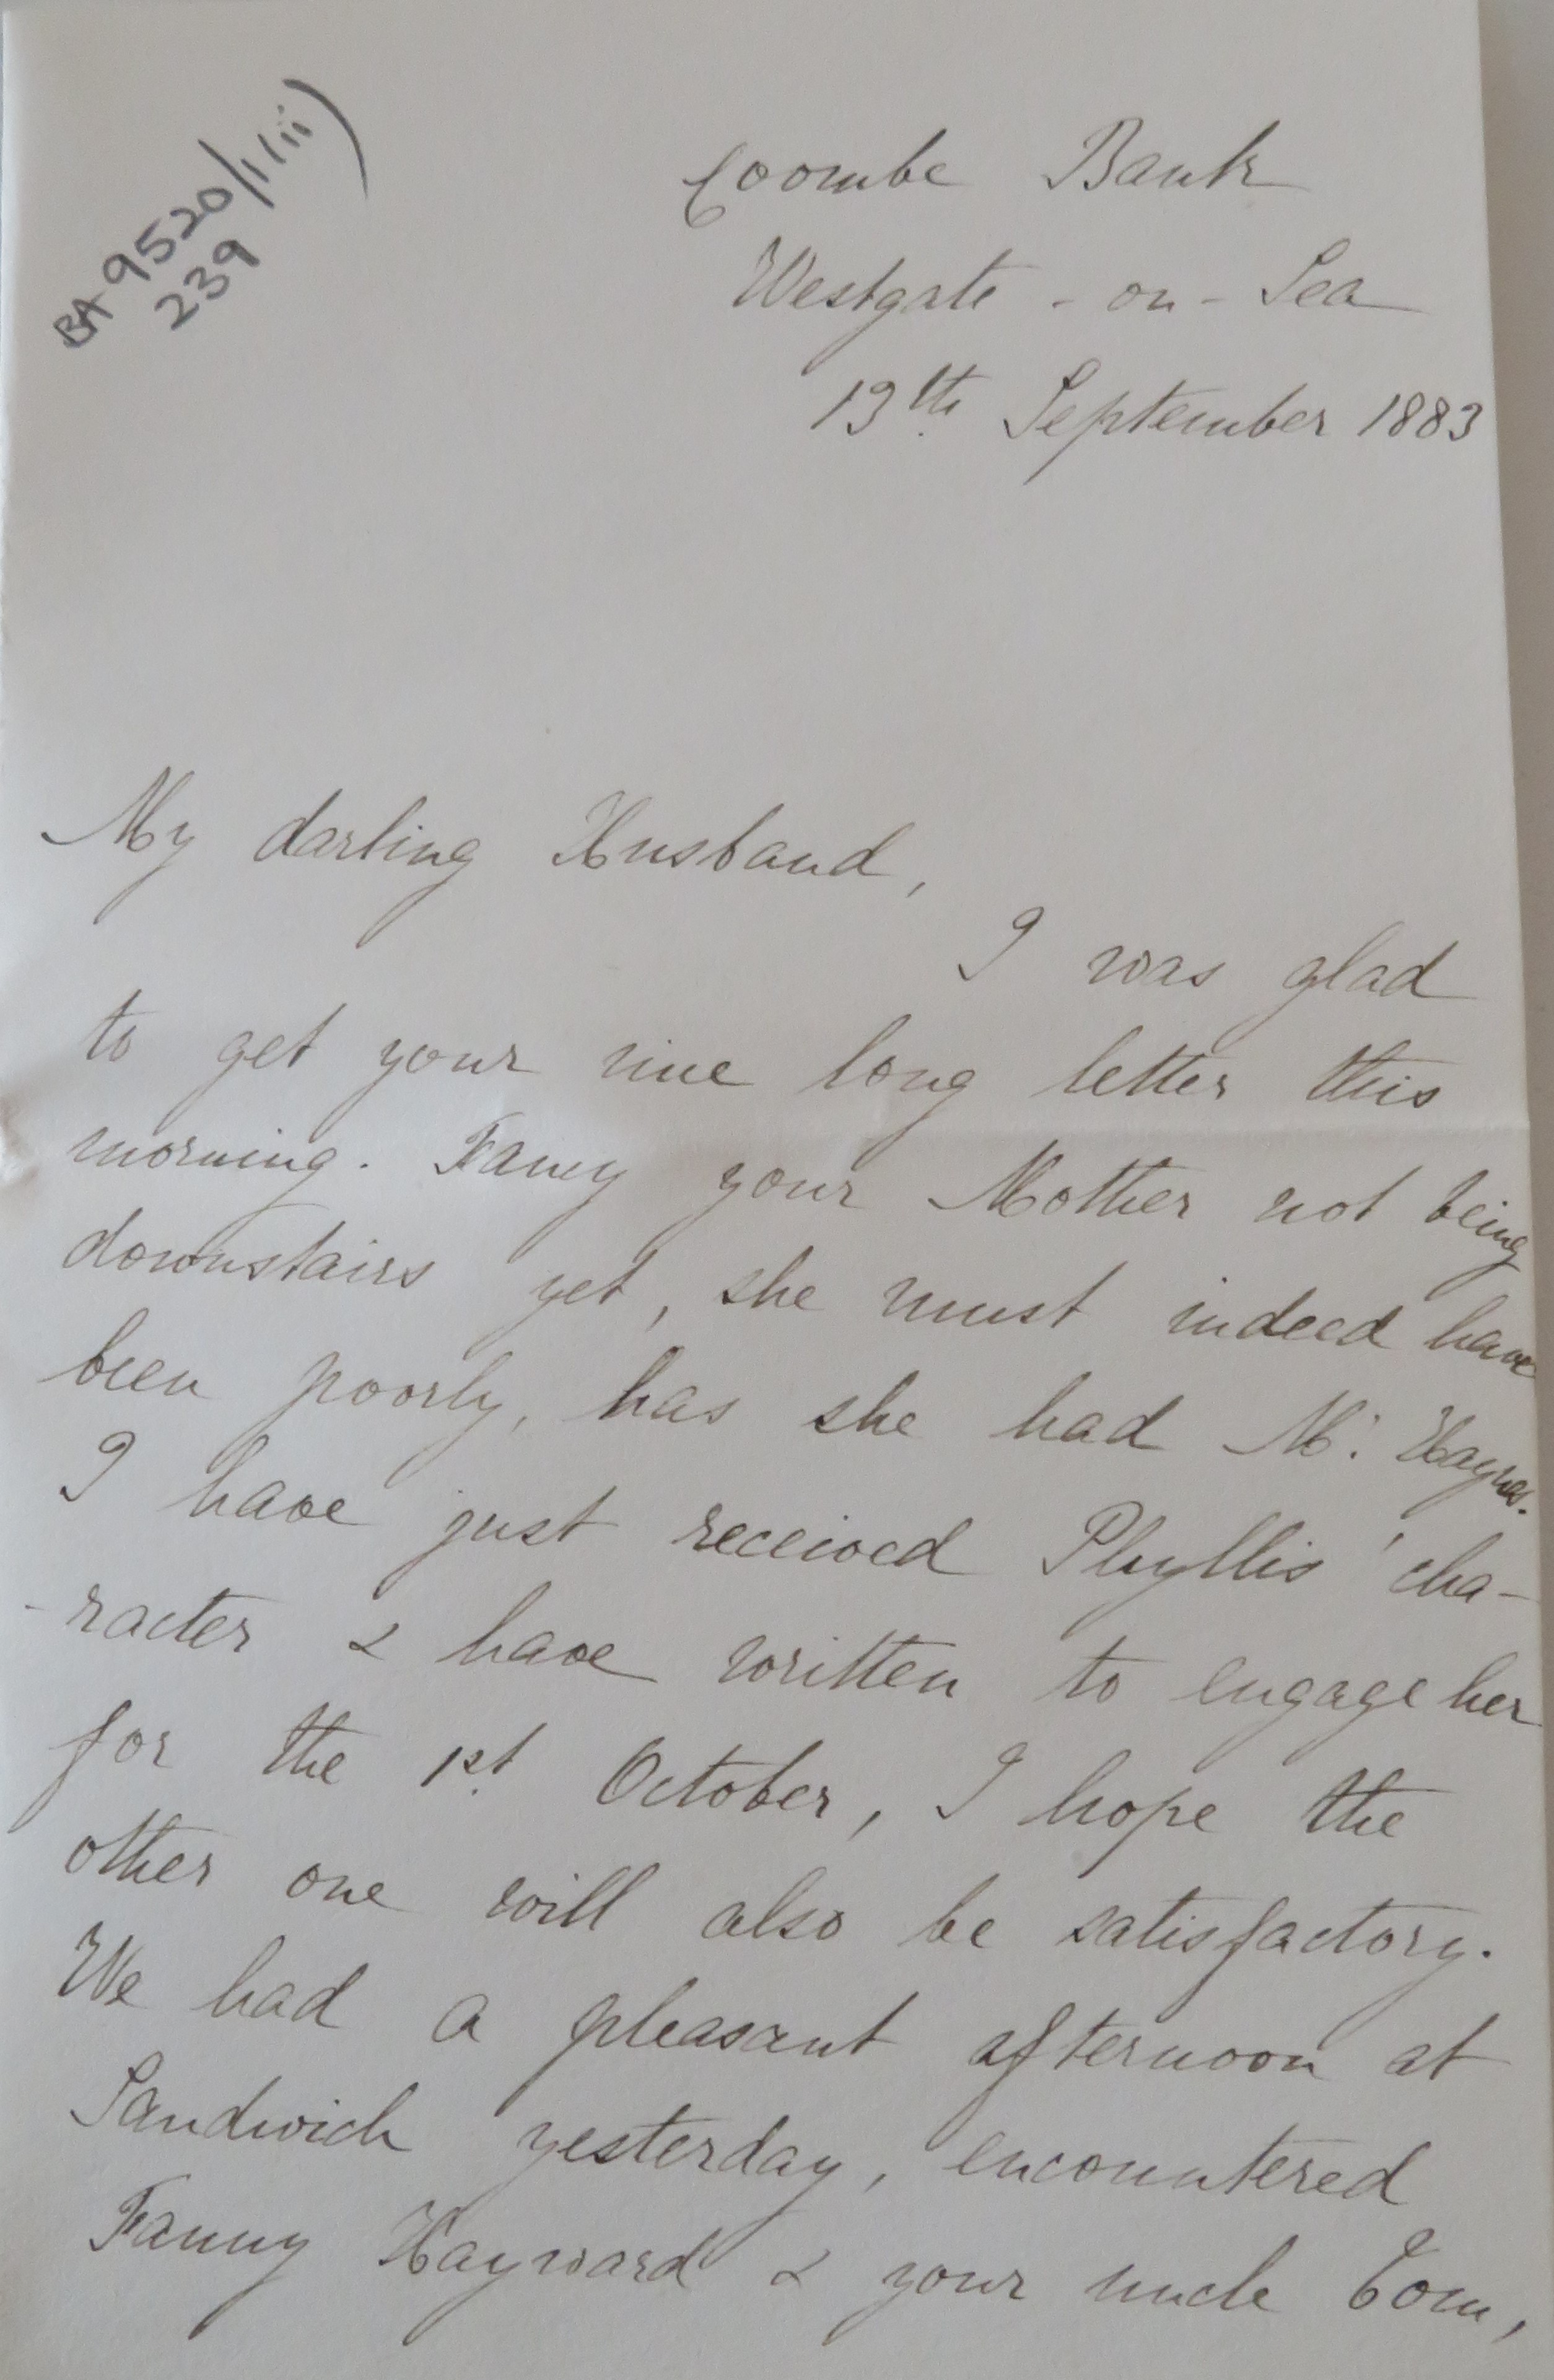 BA 9520/1/iii)
239
Coombe Bank
Westgate - on - Sea
19th September 1883
My darling Husband,
I was glad
to get your nice long letter this
morning. Fancy your Mother not being
downstairs yet, she must indeed have
been poorly, has she had Mr. Haynes.
I have just received Phyllis' cha-
-racter & have written to engage her
for the 1st October, I hope the
other one will also be satisfactory.
We had a pleasant afternoon at
Sandwich yesterday, encountered
Fanny Hayward & your uncle Tom,